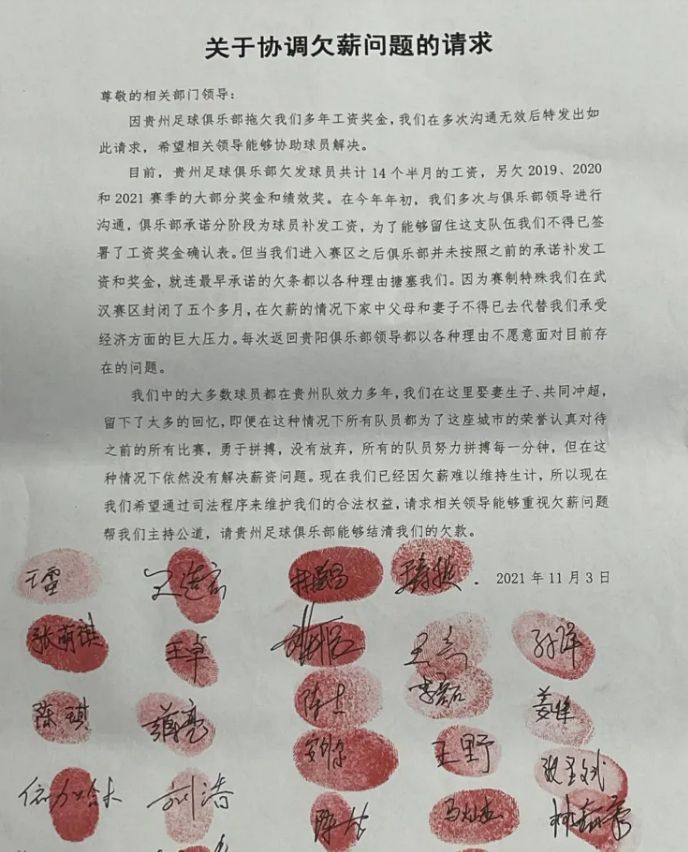 关于协调欠薪问题的请求
尊敬的相关部门领导:
因贵州足球俱乐部拖欠我们多年工资奖金,我们在多次沟通无效后特发出如
此请求,希望相关领导能够协助球员解决。
目前,贵州足球俱乐部欠发球员共计14个半月的工资,另欠2019、2020
和2021赛季的大部分奖金和绩效奖。在今年年初,我们多次与俱乐部领导进行
沟通,俱乐部承诺分阶段为球员补发工资,为了能够留住这支队伍我们不得已签
署了工资奖金确认表。但当我们进入赛区之后俱乐部并未按照之前的承诺补发工
资和奖金,就连最早承诺的欠条都以各种理由搪塞我们。因为赛制特殊我们在武
汉赛区封闭了五个多月,在欠薪的情况下家中父母和妻子不得已去代替我们承受
经济方面的巨大压力。每次返回贵阳俱乐部领导都以各种理由不愿意面对目前存
在的问题。
我们中的大多数球员都在贵州队效力多年,我们在这里娶妻生子、共同冲超,
留下了太多的回忆,即便在这种情况下所有队员都为了这座城市的荣誉认真对待
之前的所有比赛,勇于拼搏,没有放弃,所有的队员努力拼搏每一分钟,但在这
种情况下依然没有解决薪资问题。现在我们已经因欠薪难以维持生计,所以现在
我们希望通过司法程序来维护我们的合法权益,请求相关领导能够重视欠薪问题
帮我们主持公道,请贵州足球俱乐部能够结清我们的欠款。
2021年11月3日
张萌琪 王卓
陈琪 蒋亮
王野
刘浩